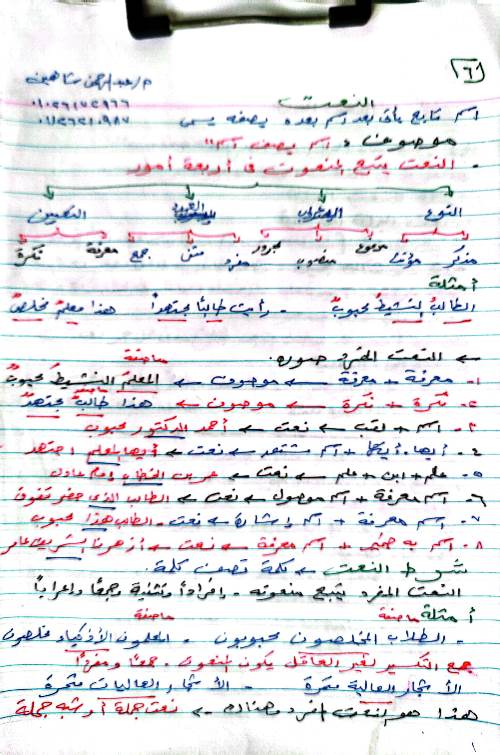 ٦
م/عبدالرحمن شاهين
النعت
اسم تابع يأتى بعد اسم بعده يصفه يسمى
موصوف: اسم يصف اسم"
- النعت يتبع المنعوت فى أربعة أمور
النوع الإعراب العدد التعيين
مذكر مؤنث مرفوع منصوب مجرور مفرد مثنى جمع معرفة نكرة
أمثلة
الطالبُ النشيطُ محبوبٌ - رأيت طالباً مجتهداً هذا معلمٌ مخلصٌ
← النعت المفرد صوره.
١- معرفة + معرفة ← موصوف ← المعلمُ النشيطُ محبوبٌ
٢- نكرة + نكرة ← موصوف ← هذا طالبٌ مجتهدٌ
٣- اسم + لقب ← نعت ← أحمد الدكتور محبوب
٤- أيها، أيتها + اسم ← نعت ← أيها المعلم اجتهد
٥- علم + ابن + علم ← نعت ← عمر بن الخطاب إمام عادل
٦- اسم معرفة + اسم موصول ← نعت ← الطالب الذى حضر تفوق
٧- اسم معرفة + اسم إشارة ← نعت - الطالب هذا محبوب
٨- اسم به ضمير + اسم معرفة ← نعت ← أزهرنا الشريف عامر
شرط النعت ← كلمة تصف كلمة.
النعت المفرد يتبع منعوته - إفراداً وتثنية وجمعاً وإعراباً
أمثلة
- الطلاب المخلصون محبوبون - المعلمون الأذكياء مخلصون
جمع التكسير لغير العاقل يكون المنعوت - جمعاً ومفرداً
الأشجار العالية مثمرة - الأشجار العاليات مثمرة
هذا هو النعت المفرد وهناك ← نعت جملة أو شبه جملة